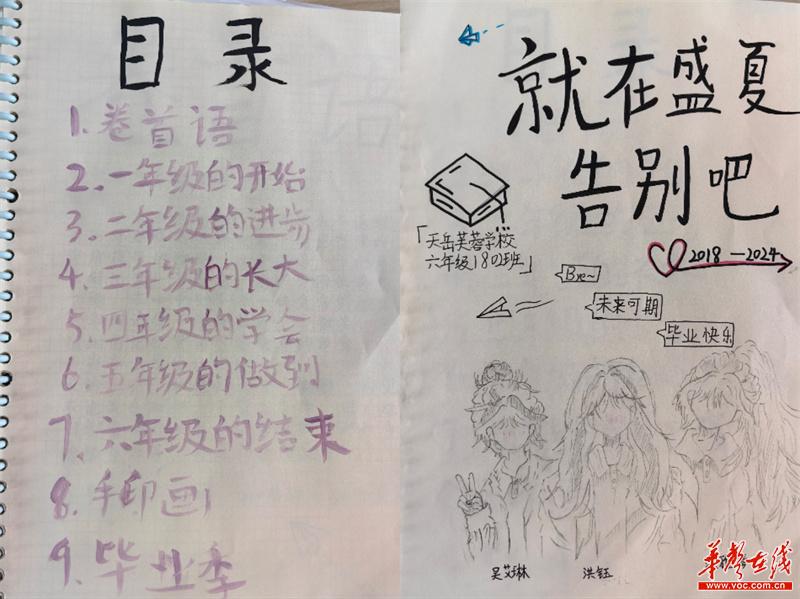 目录
1.卷首语
2.一年级的开始
3.二年级的进步
4.三年级的长大
5.四年级的学会
6.五年级的做到
7.六年级的结束
8.手印画
9.毕业季
就在盛夏
告别吧
「天岳芙蓉学校
六年级1802班」
2018—2024
Bye~
未来可期
毕业快乐
吴艾琳 洪钰
华声在线
www.voc.com.cn